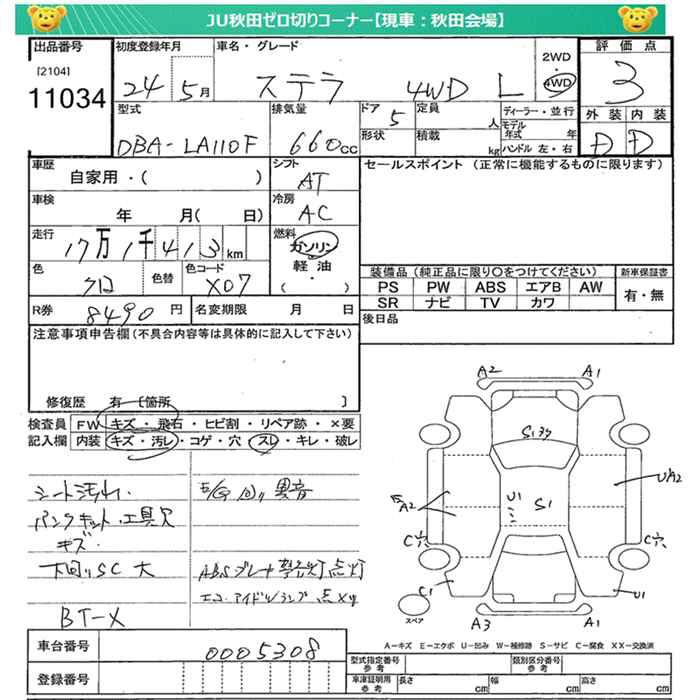 JU秋田ゼロ切りコーナー【現車：秋田会場】
出品番号
[2104]
11034
初度登録年月
24 5月
車名・グレード
ステラ 4WD L
2WD
・
4WD
評価点
3
外装 内装
D D
型式
DBA-LA110F
排気量
660cc
ドア
5
形状
定員
人
積載
kg
ディーラー・並行
モデル年式 年
ハンドル 左・右
車歴
自家用・( )
シフト
AT
セールスポイント (正常に機能するものに限ります)
車検
年 月( 日)
冷房
AC
走行
17万1千413km
燃料
ガソリン
軽油
・
( )
色
クロ
色替
色コード
X07
装備品 (純正品に限り〇をつけてください)
PS PW ABS エアB AW
SR ナビ TV カワ
新車保証書
有・無
R券 8490円
名変期限 月 日
後日品
注意事項申告欄(不具合内容等は具体的に記入して下さい)
修復歴 有〔箇所 〕
検査員記入欄
FW キズ・飛石・ヒビ割・リペア跡・×要
内装 キズ・汚レ・コゲ・穴・スレ・キレ・破レ
シート汚れ.
パンクキット.工具欠
キズ.
下回りSC大
BT-X
E/G回り異音
ABSブレーキ警告灯点灯
エコ.アイドリランプ点メツ
A2 A1
S1399
U1
S1
A2
UA2
C穴 C穴
C1 U1
スペア
A3 A1
A－キズ E－エクボ U－凹み W－補修跡 S－サビ C－腐食 XX－交換済
車台番号
0005308
登録番号
型式指定番号
参考
類別区分番号
参考
車庫証明用
参考
長さ cm
幅 cm
高さ cm